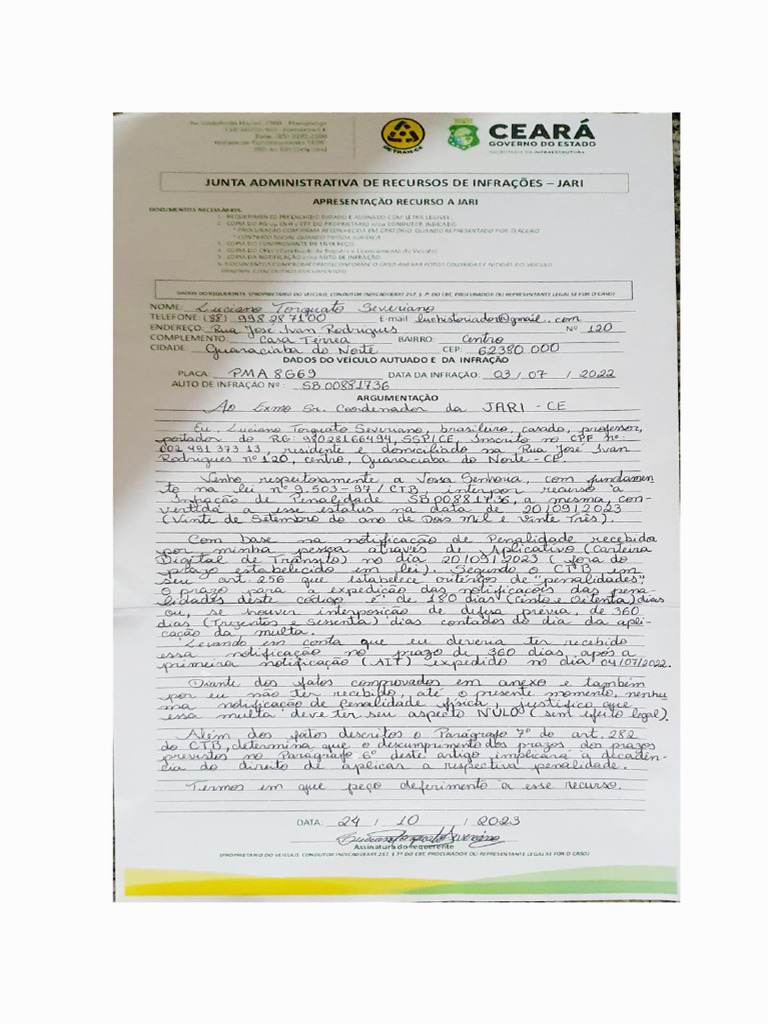 DETRAN-CE
CEARÁ
GOVERNO DO ESTADO
SECRETARIA DA INFRAESTRUTURA
JUNTA ADMINISTRATIVA DE RECURSOS DE INFRAÇÕES – JARI
APRESENTAÇÃO RECURSO A JARI
DOCUMENTOS NECESSÁRIOS:
1. REQUERIMENTO PREENCHIDO DATADO E ASSINADO COM LETRA LEGÍVEL
* PROCURAÇÃO COM FIRMA RECONHECIDA EM CARTÓRIO, QUANDO REPRESENTADO POR TERCEIRO
* CONTRATO SOCIAL QUANDO PESSOA JURÍDICA
DADOS DO REQUERENTE (PROPRIETÁRIO DO VEÍCULO, CONDUTOR INDICADO(ART 257, § 7º DO CBT, PROCURADOR OU REPRESENTANTE LEGAL SE FOR O CASO)
NOME: Luciano Torquato Severiano
TELEFONE: (88) 998287100 E-mail luchistoriador@gmail.com
ENDEREÇO: Rua José Ivan Rodrigues Nº 120
COMPLEMENTO: Casa Térrea BAIRRO: Centro
CIDADE: Guaraciaba do Norte CEP: 62380000
DADOS DO VEÍCULO AUTUADO E DA INFRAÇÃO
PLACA: PMA 8G69 DATA DA INFRAÇÃO: 03 / 07 / 2022
AUTO DE INFRAÇÃO Nº: SB00881736
ARGUMENTAÇÃO
Ao Exmo Sr. Coordenador da JARI - CE
Eu, Luciano Torquato Severiano, brasileiro, casado, professor,
portador do RG: 98028166494, SSP/CE, Inscrito no CPF nº:
002 491 373 13, residente e domiciliado na Rua José Ivan
Rodrigues nº 120, centro, Guaraciaba do Norte - CE.
Venho respeitosamente a Vossa Senhoria, com fundamen
to na lei nº 9.503-97/CTB interpor recurso à
Infração de Penalidade SB00881736, a mesma, con-
vertida a esse estatus na data de 20/09/2023
(Vinte de Setembro do ano de Dois Mil e Vinte Três).
Com base na notificação de Penalidade recebida
por minha pessoa através de Aplicativo (Carteira
Digital de Trânsito) no dia 20/09/2023 (fora do
prazo estabelecido em lei). Segundo o CTB em
seu art. 256 que estabelece critérios de "penalidades",
o prazo para a expedição das notificações das pena-
lidades deste código é de 180 dias (Cento e Oitenta) dias
ou, se houver interposição de defesa prévia, de 360
dias (Trezentos e Sessenta) dias contados do dia da apli-
cação da multa.
Levando em conta que eu deveria ter recebido
essa notificação no prazo de 360 dias, após a
primeira notificação (AIT) expedido no dia 04/07/2022.
Diante dos fatos comprovados em anexo e também
por eu não ter recebido, até o presente momento, nenhu
ma notificação de Penalidade física, justifico que
essa multa deve ter seu aspecto NULO (sem efeito legal).
Além dos fatos descritos o Parágrafo 7º do art. 282
do CTB, determina que o descumprimento dos prazos, dos prazos
previstos no Parágrafo 6º deste artigo implicará a decadên-
cia do direito de aplicar a respectiva penalidade.
Termos em que peço deferimento a esse recurso.
DATA: 24 / 10 / 2023
Luciano Torquato Severiano
Assinatura do requerente
(PROPRIETÁRIO DO VEÍCULO, CONDUTOR INDICADO(ART 257, § 7º DO CBT, PROCURADOR OU REPRESENTANTE LEGAL SE FOR O CASO)